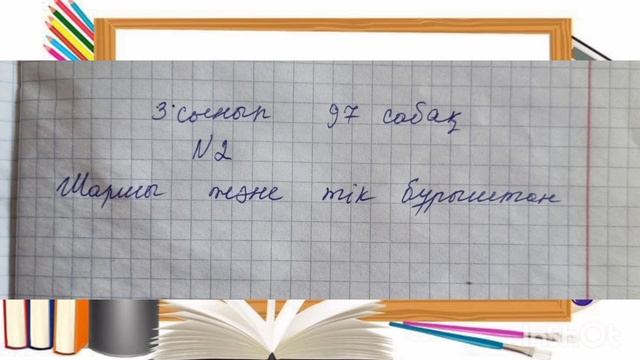 3 сынып 97 сабақ
№2
Шаршы және тік бұрыштан
InShOt